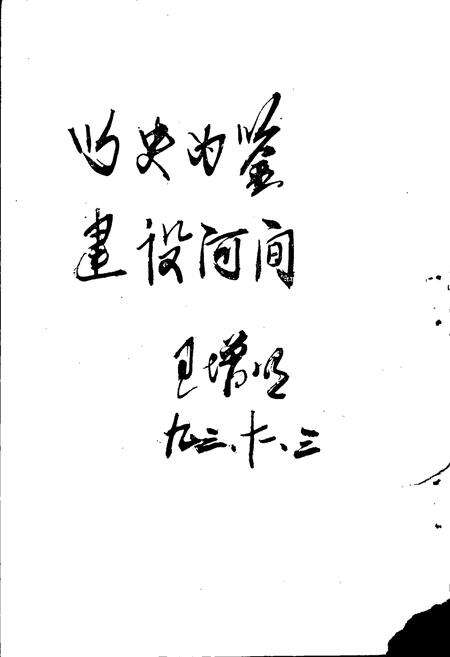 以史为鉴
建设河间
王增明
九三、十一、三